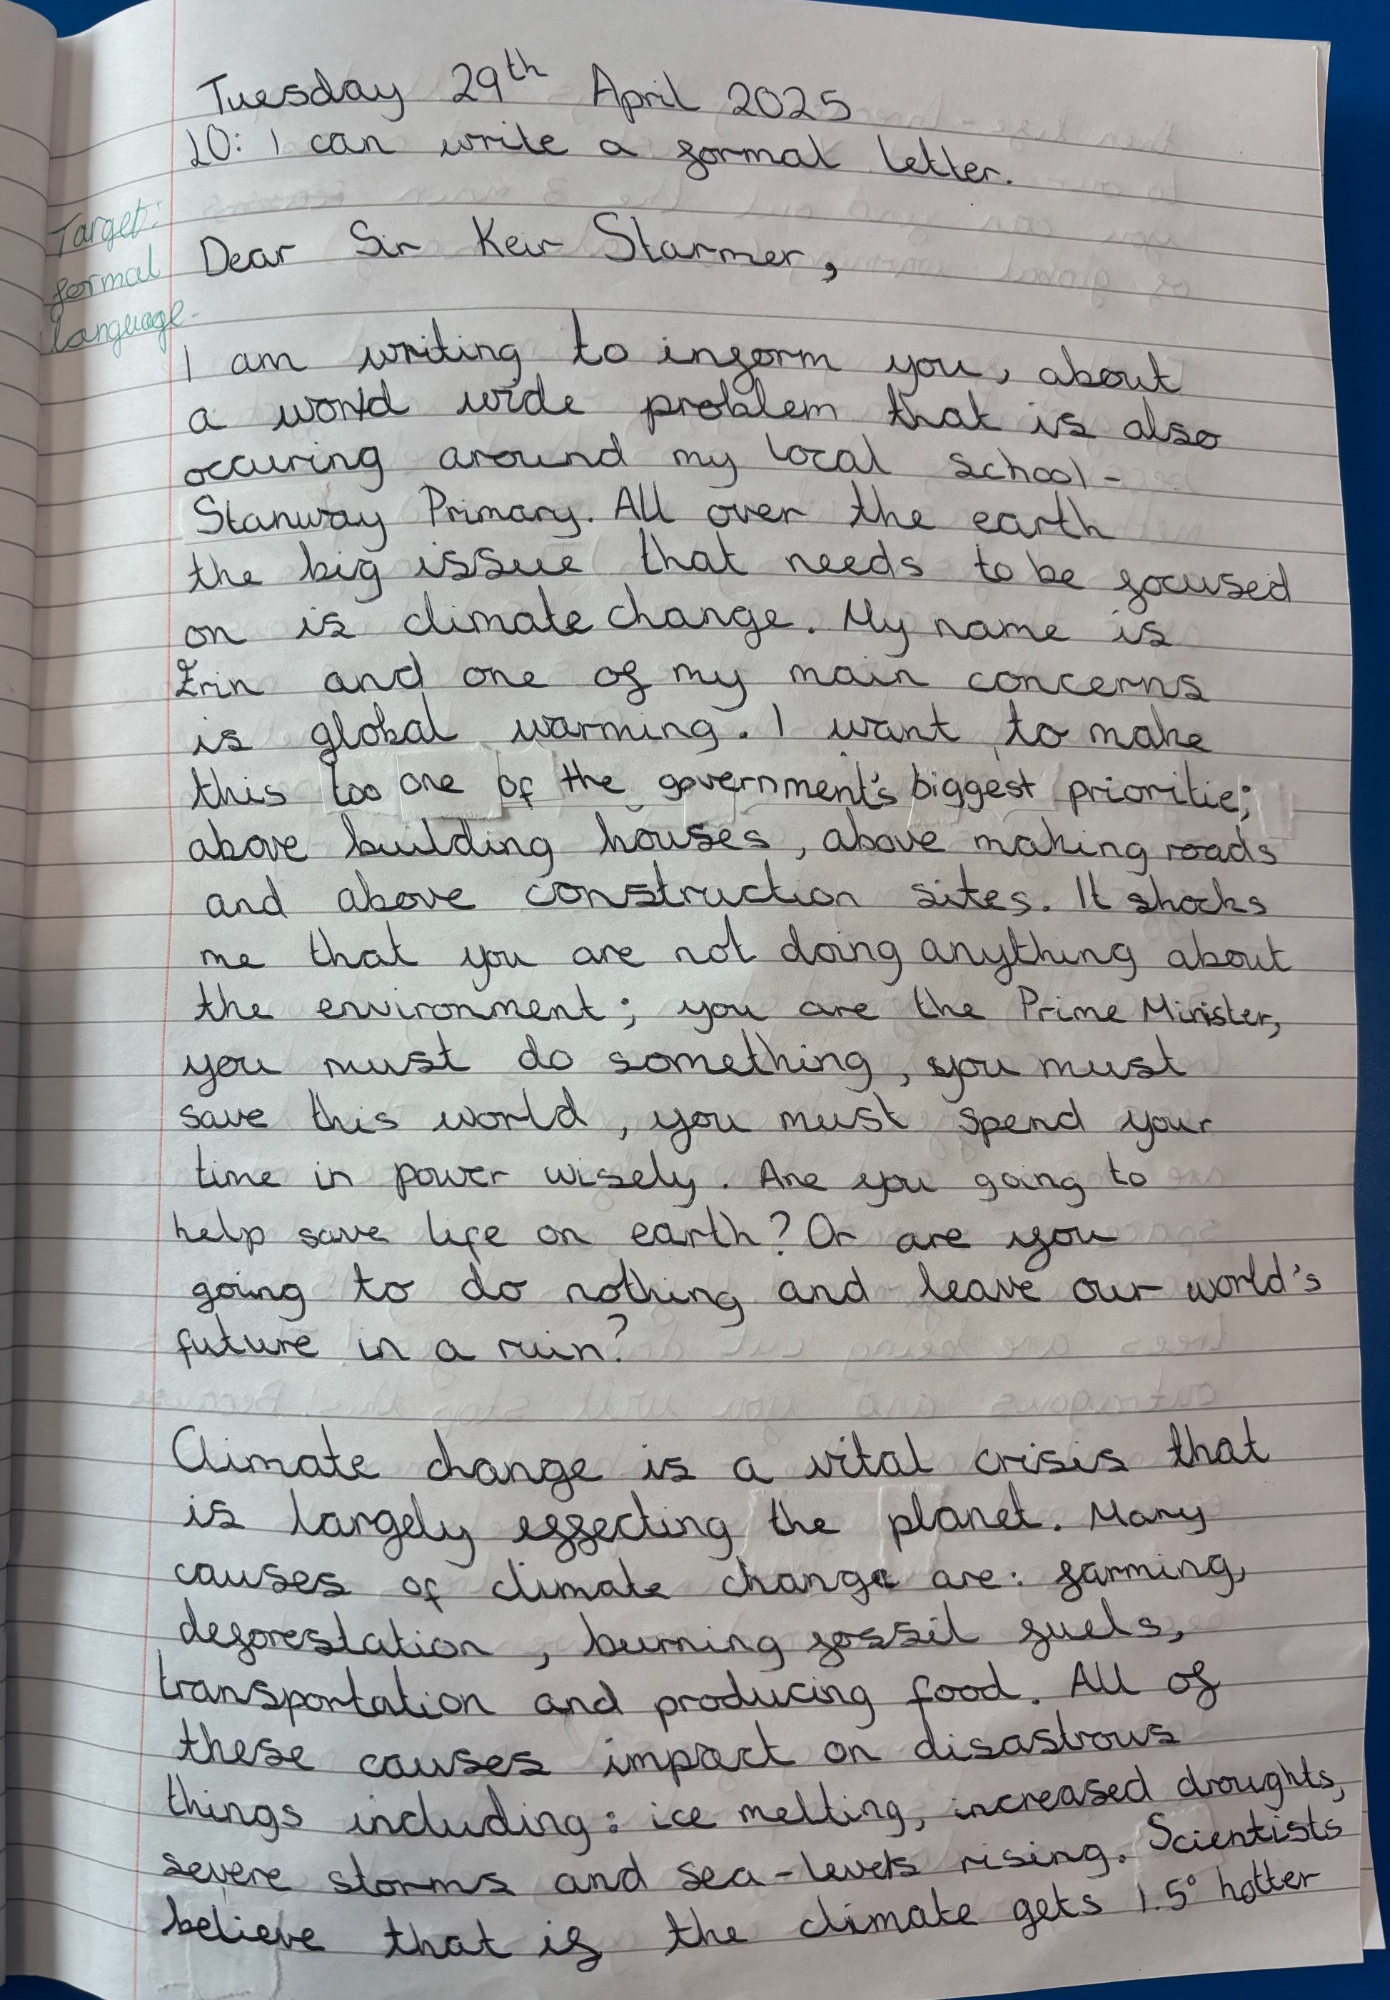 Tuesday 29th April 2025
LO: I can write a formal letter.
Target:
formal
language.
Dear Sir Keir Starmer,
I am writing to inform you, about
a world wide problem that is also
occuring around my local school -
Stanway Primary. All over the earth
the big issue that needs to be focused
on is climate change. My name is
Erin and one of my main concerns
is global warming. I want to make
this too one of the government's biggest prioritie;
above building houses, above making roads
and above construction sites. It shocks
me that you are not doing anything about
the environment; you are the Prime Minister,
you must do something, you must
save this world, you must spend your
time in power wisely. Are you going to
help save life on earth? Or are you
going to do nothing and leave our world's
future in a ruin?
Climate change is a vital crisis that
is largely effecting the planet. Many
causes of climate change are: farming,
deforestation, burning fossil fuels,
transportation and producing food. All of
these causes impact on disastrous
things including: ice melting, increased droughts,
severe storms and sea-levels rising. Scientists
believe that if the climate gets 1.5° hotter